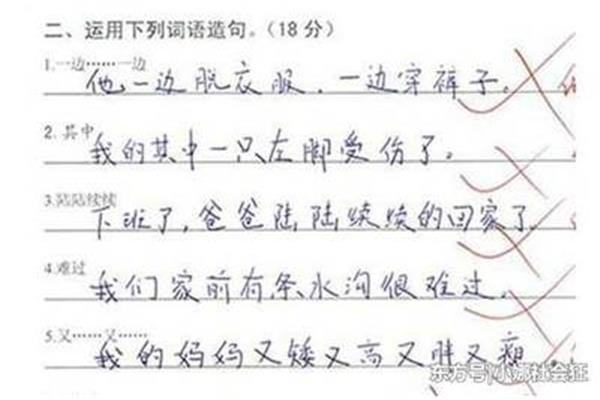 二、运用下列词语造句。(18分)
1.一边……一边
他一边脱衣服，一边穿裤子。
2.其中
我的其中一只左脚受伤了。
3.陆陆续续
下班了，爸爸陆陆续续的回家了。
4.难过
我们家前有条水沟很难过。
5.又……又……
我的妈妈又矮又高又胖又瘦。
东方号|小娜社会狂